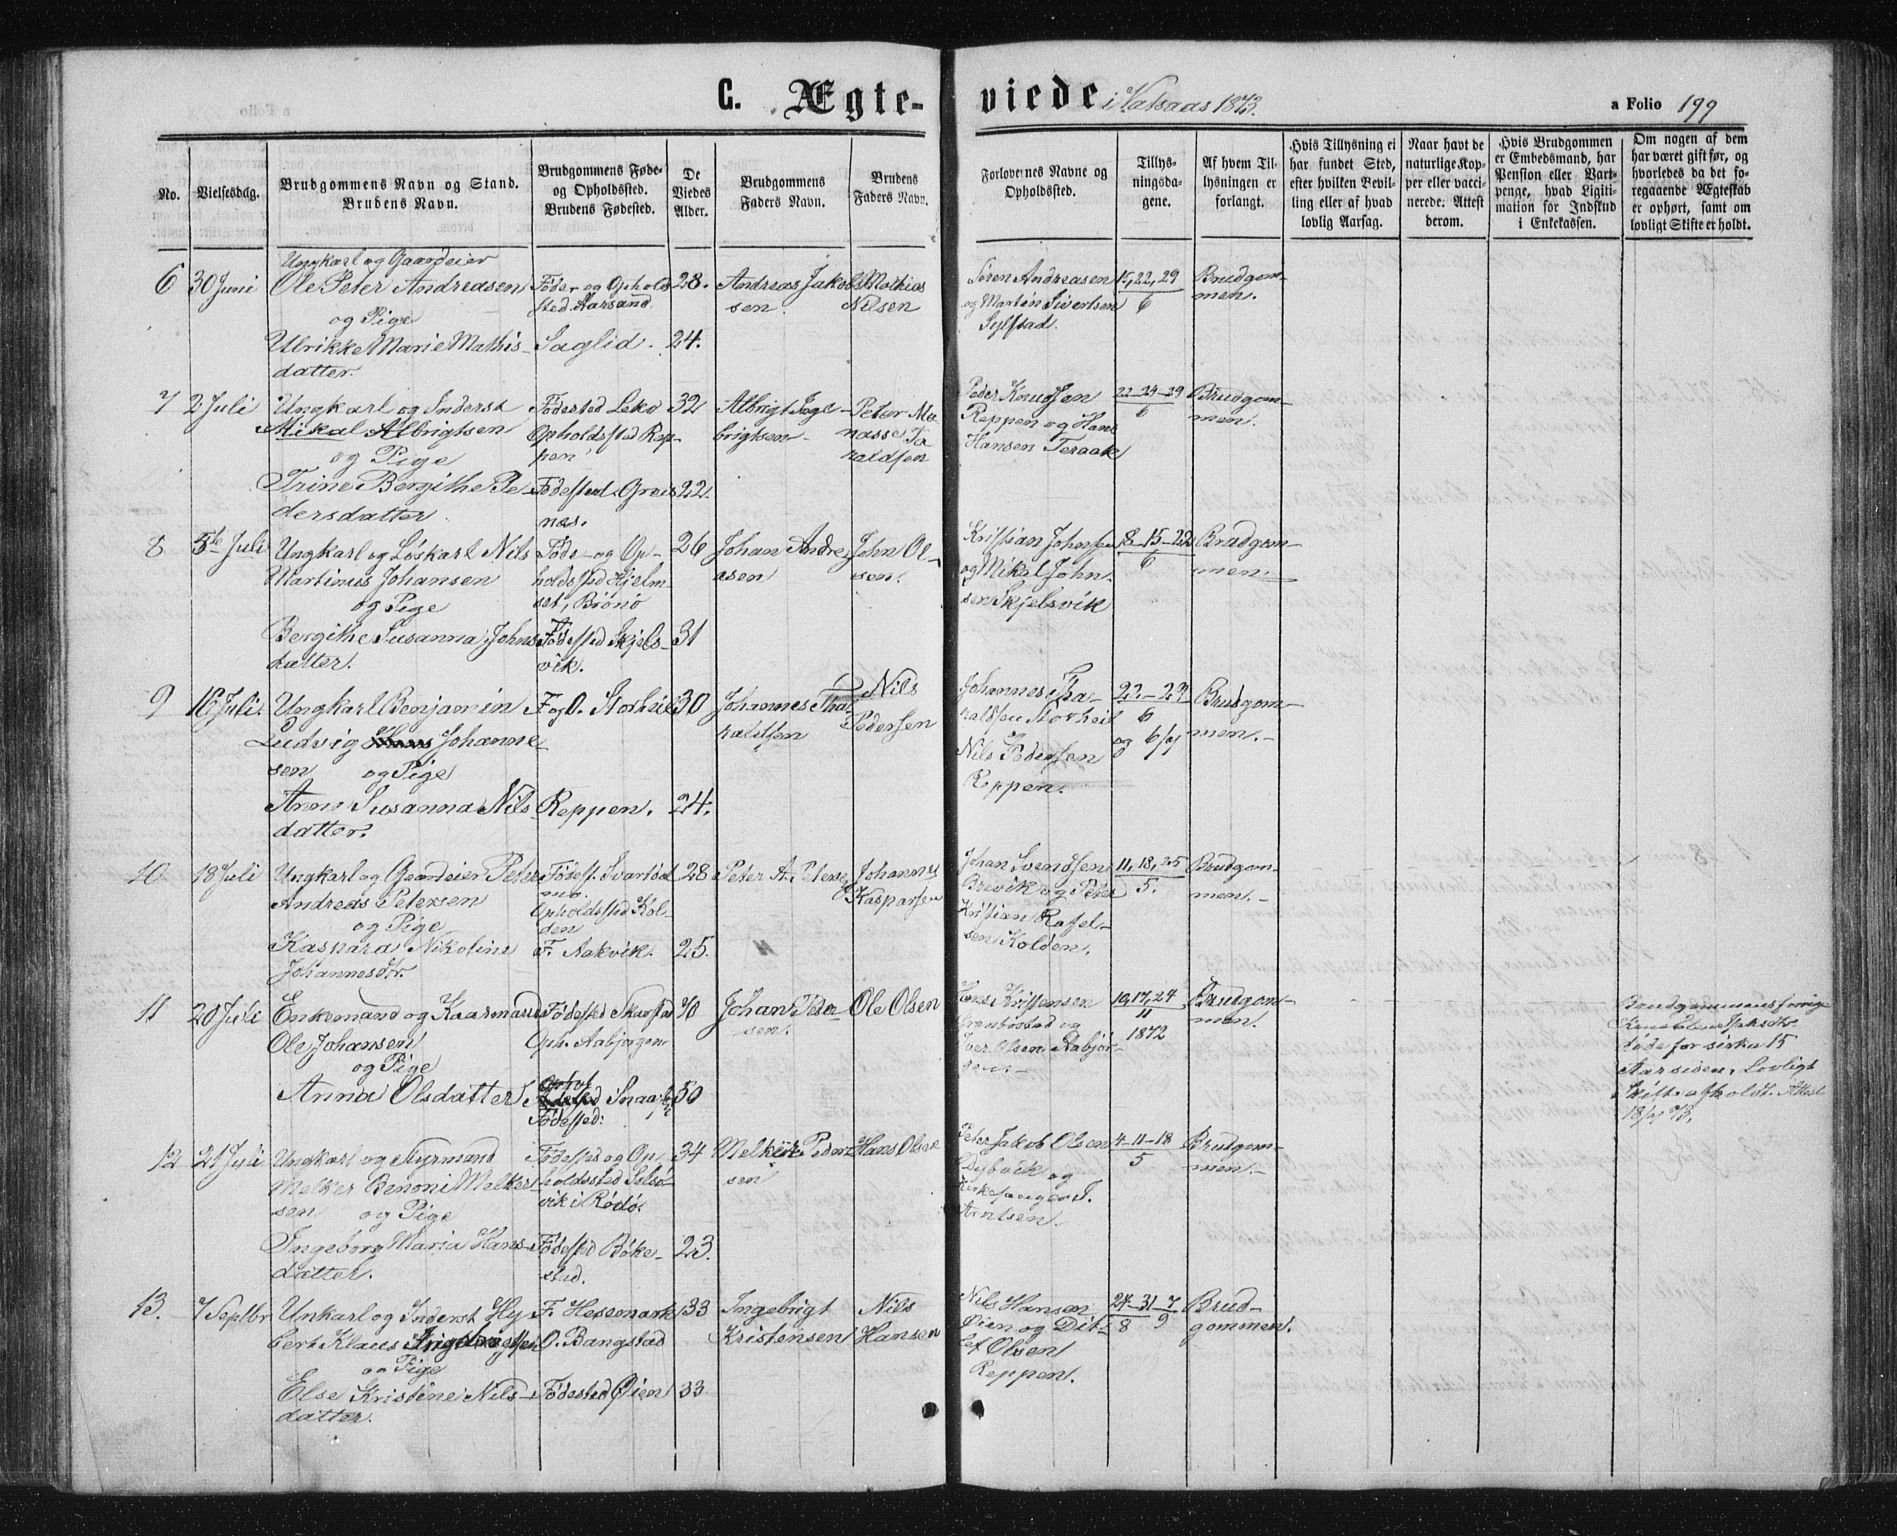 C. Ægte-
viede
1873.
a Folio 199
No.
Vielsesdag.
Brudgommens Navn og Stand.
Brudens Navn.
Brudgommens Føde-
og Opholdssted.
Brudens Fødested.
De
Viedes
Alder.
Brudgommens
Faders Navn.
Brudens
Faders Navn.
Forlovernes Navne og
Opholdssted.
Tillys-
ningsda-
gene.
Af hvem Til-
lysningen er
forlangt.
Hvis Tillysning ei
har fundet Sted,
efter hvilken Bevil-
ling eller af hvad
lovlig Aarsag.
Naar havt de
naturlige Kop-
per eller vacci-
nerede. Attest
derom.
Hvis Brudgommen
er Embedsmand, har
Pension eller Vart-
penge, hvad Ligiti-
mation for Indskud
i Enkekassen.
Om nogen af dem
har været gift før, og
hvorledes da det fo-
regaaende Ægteskab
er ophørt, samt om
lovligt Skifte er holdt.
6 30 Juni
Ungkarl og Gaardeier
Ole Peter Andreasen
og Pige
Ulrikke Marie Mathis-
datter.
Føde- og Ophold
sted Aarsand
Saglid.
28.
24.
Andreas Jakob
sen.
Mathias
Nilsen
Sören Andreasen
og Martin Sivertsen
15, 22, 29
6
Brudgom-
men.
7 2 Juli
Ungkarl og Inderst
Mikal Albrigtsen
og Pige
Trine Bergithe Pe-
dersdatter
Fødested Leko
Opholdssted Rep-
pen
Fødested Græs
næs.
32
22.
Albrigt Inge-
brigtsen
Peter Ma
nasse
raldsen
Peder Knudsen
Reppen og Hans
Hansen Teraak
22-24-29
6
Brudgom-
men.
8 5te Juli
Ungkarl og Løskarl Nils
Martinus Johansen
og Pige
Bergithe Susanna Johns
datter.
Føde- og Op-
holdssted Hjelm-
set, Brönö
Fødested Skjels-
vik.
26
31
Johan Andre
asen
John Ol-
sen.
Kristian Johnsen
og Mikal John-
sen Skjelsvik
8-15-22
6
Brudgom-
men.
9 16 Juli.
Ungkarl Benjamin
Ludvig Johanne-
sen og Pige
Anne Susanna Nils
datter.
F og O. Storheil
Reppen.
30
24.
Johannes Tha-
raldsen
Nils
Pedersen
Johannes Tha-
raldsen Storheil
Nils Pedersen
Reppen.
22-29
6
og 6/7
Brudgom-
men.-
10 18 Juli
Ungkarl og Gaardeier Peter
Andreas Petersen
og Pige
Kaspara Nikoline
Johannesdtr.
Födest. Svartdal
mo.
Opholdssted Kol-
den
F. Aakvik.
28
25.
Peter A. Petersen
Johannes
Kasparsen
Johan Svendsen
Brevik og Peter
Kristian Rafel-
sen Kolden.
11, 18, 25
5.
Brudgom-
men.-
11 20 Juli
Enkemand og Kaarmand
Ole Johansen
og Pige
Anna Olsdatter
Födested Skarstad
Oph. Aabjørgen
Ophol
Fødested:
70
50
Johan Peder
sen.
Ole Olsen
Hans Kristensen
og
Iver Olsen Aabjør-
gen.-
10, 17, 24
11
1872
Brudgom-
men.
Brudgommens forrige
Kone
döde for sirka 15
Aar siden. Lovligt
Skifte afholdt. Attest
18/7 73.
12 21 Juli
Ungkarl og Styrmand
Melker Benoni Melker-
sen og Pige
Ingeborg Maria Hans-
datter.
Fødested og Op-
holdssted Selsö-
vik i Rödö.
Fødested Böke-
stad.
34
23.
Melkior Peder
sen
Hans Olsen
Peter Jakob Olsen
Dybvik og
Kirkesanger J.
Arntsen.
4-11-18
5
Brudgom-
men.-
13. 7 Septbr
Unkarl og Inderst Hy
bert Klaus
og Pige
Else Kristine Nils-
datter.
F. Hessemark
O. Bangstad
Fødested Øien
33
33
Ingebrigt
Kristensen
Nils
Hansen
Nils Hansen
Øien og Dit-
lef Olsen
Reppen.
24-31-7
8 9
Brud-
gommen.